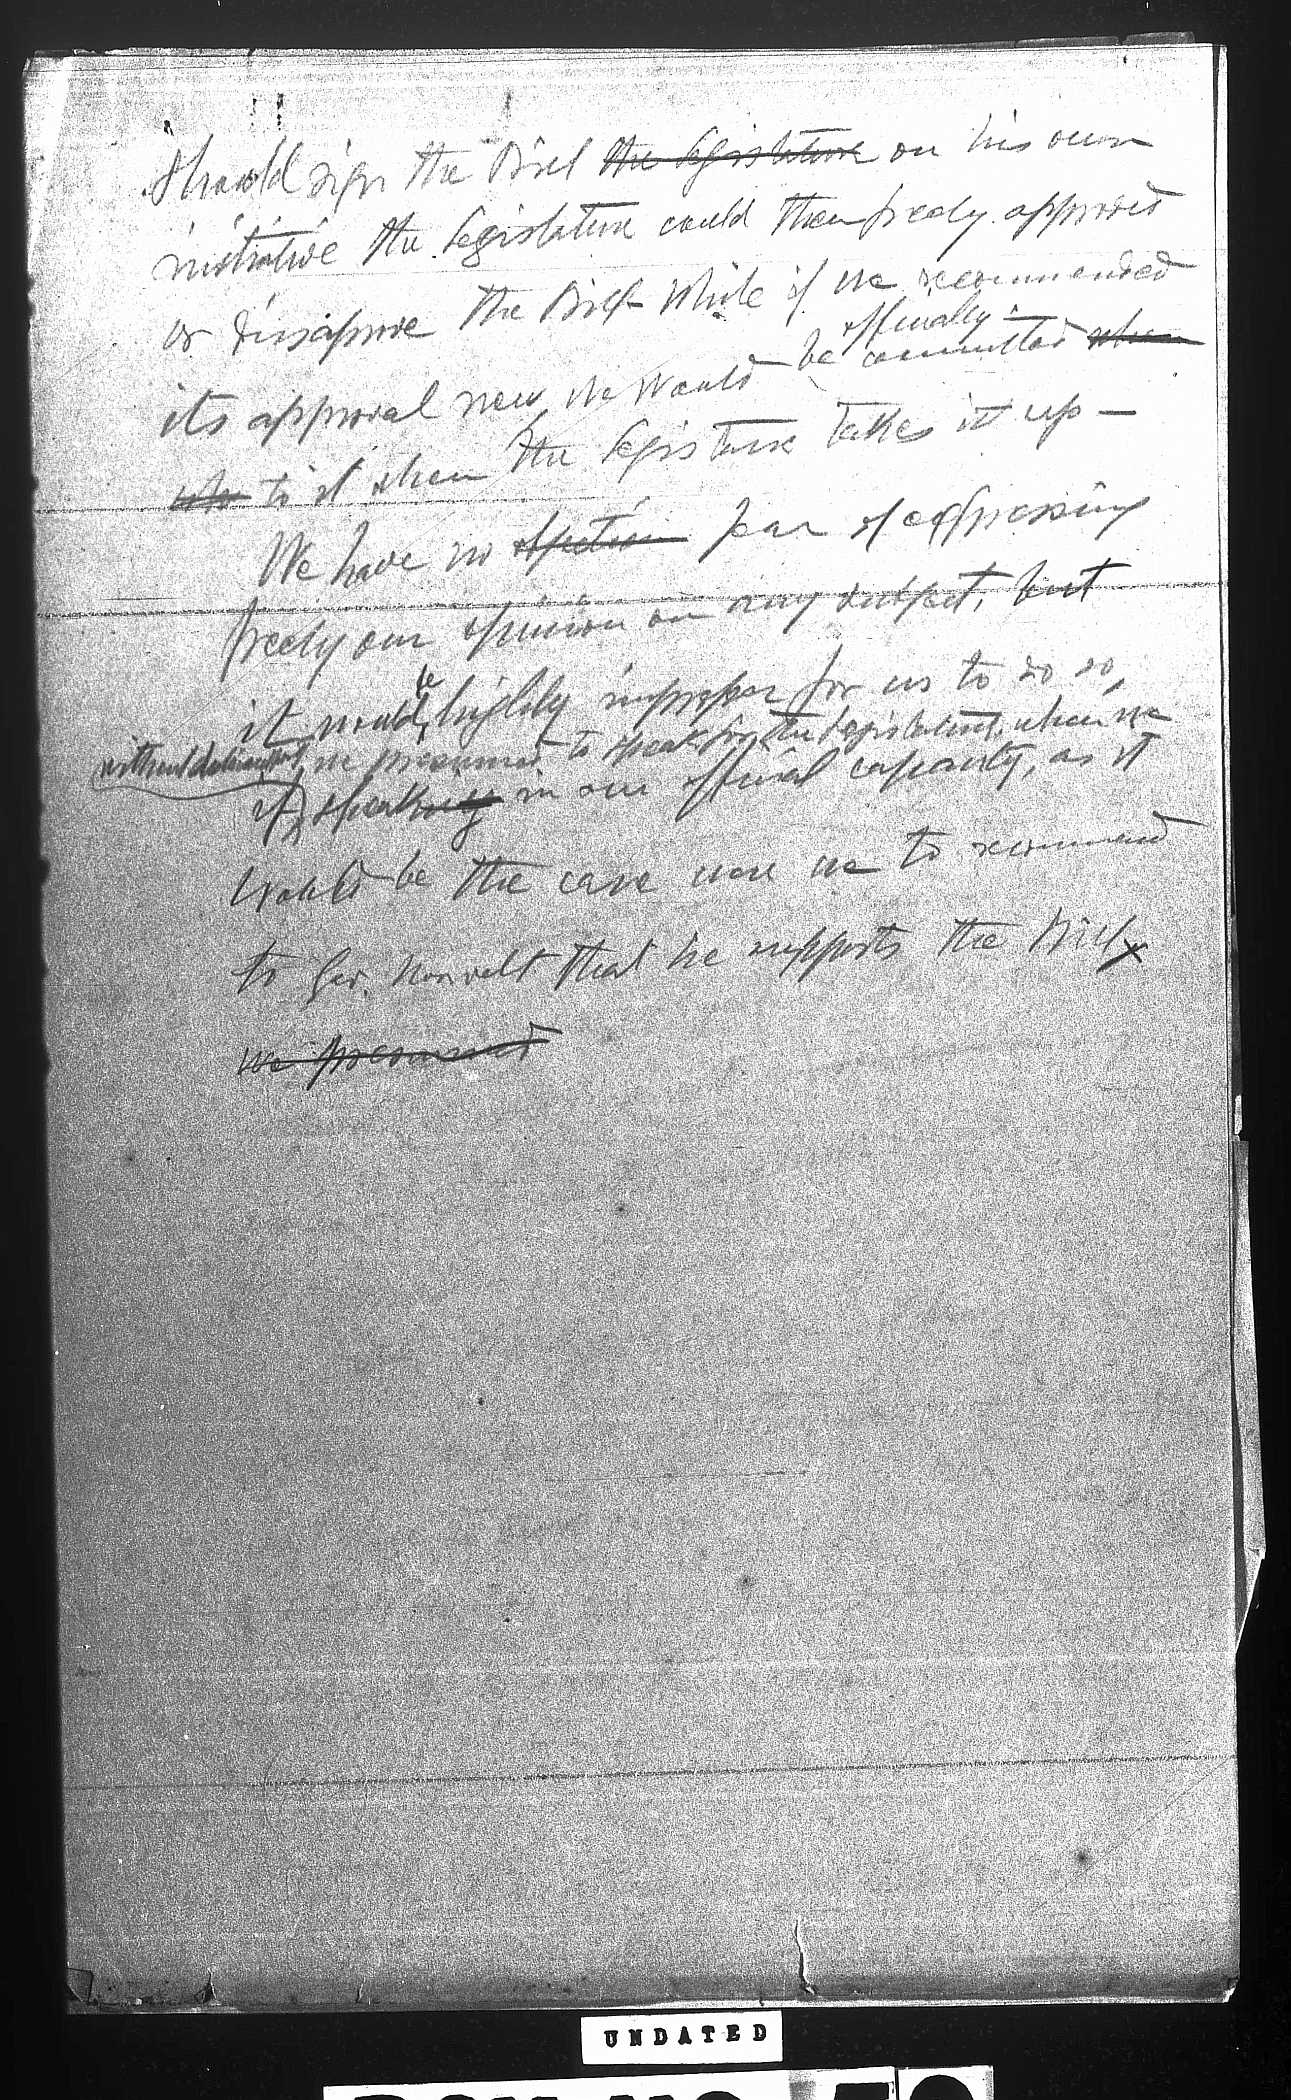 should sign the Bill the legislature on his own
initiative the legislature could then freely approved
or dissaprove the Bill while if we recommended
its approval now, we would be officially committed when
who to it when the legislature takes it up —
We have no objection fear of expressing
freely our opinion on any subject, but
it would be highly improper for us to do so,
without delivering we presumed to speak for the Legislature, when we
if speaking in our official capacity, as it
would be the case were we to recommend
to Gov. that he supports the Bill x
we presumed
UNDATED